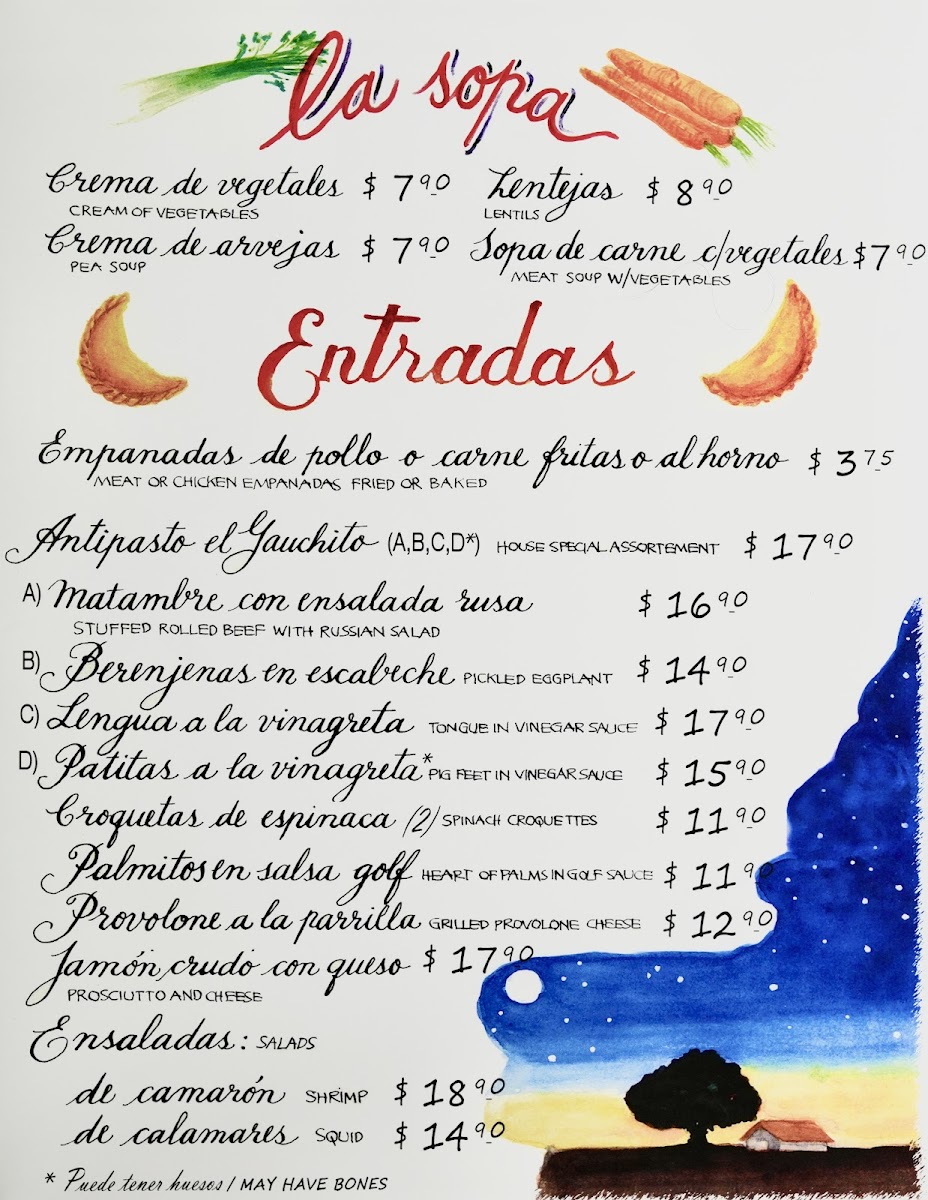 la sopa
Crema de vegetales $ 7.90 Lentejas $ 8.90
CREAM OF VEGETABLES LENTILS
Crema de arvejas $ 7.90 Sopa de carne c/vegetales $7.90
PEA SOUP MEAT SOUP W/VEGETABLES
Entradas
Empanadas de pollo o carne fritas o al horno $ 3.75
MEAT OR CHICKEN EMPANADAS FRIED OR BAKED
Antipasto el Gauchito (A,B,C,D*) HOUSE SPECIAL ASSORTEMENT $ 17.90
A) Matambre con ensalada rusa $ 16.90
STUFFED ROLLED BEEF WITH RUSSIAN SALAD
B) Berenjenas en escabeche PICKLED EGGPLANT $ 14.90
C) Lengua a la vinagreta TONGUE IN VINEGAR SAUCE $ 17.90
D) Patitas a la vinagreta* PIG FEET IN VINEGAR SAUCE $ 15.90
Croquetas de espinaca (2) SPINACH CROQUETTES $ 11.90
Palmitos en salsa golf HEART OF PALMS IN GOLF SAUCE $ 11.90
Provolone a la parrilla GRILLED PROVOLONE CHEESE $ 12.90
Jamón crudo con queso $ 17.90
PROSCIUTTO AND CHEESE
Ensaladas: SALADS
de camarón SHRIMP $ 18.90
de calamares SQUID $ 14.90
* Puede tener huesos / MAY HAVE BONES